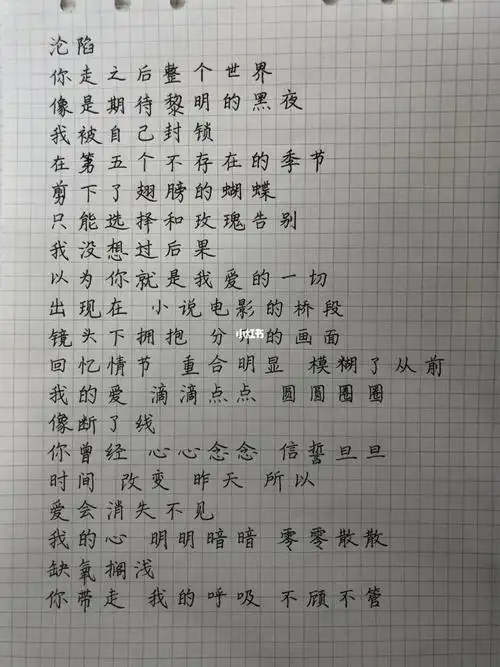 沦陷
你走之后整个世界
像是期待黎明的黑夜
我被自己封锁
在第五个不存在的季节
剪下了翅膀的蝴蝶
只能选择和玫瑰告别
我没想过后果
以为你就是我爱的一切
出现在 小说电影的桥段
镜头下拥抱 分开的画面
小红书
回忆情节 重合明显 模糊了从前
我的爱 滴滴点点 圆圆圈圈
像断了线
你曾经 心心念念 信誓旦旦
时间 改变 昨天 所以
爱会消失不见
我的心 明明暗暗 零零散散
缺氧搁浅
你带走 我的呼吸 不顾不管